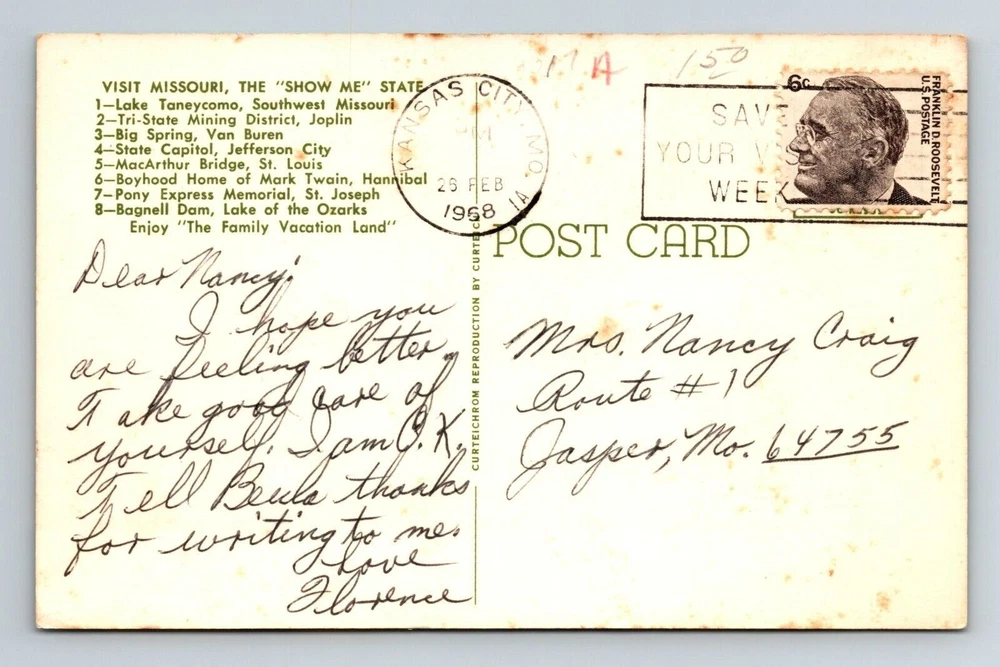 VISIT MISSOURI, THE "SHOW ME" STATE
1—Lake Taneycomo, Southwest Missouri
2—Tri-State Mining District, Joplin
3—Big Spring, Van Buren
4—State Capitol, Jefferson City
5—MacArthur Bridge, St. Louis
6—Boyhood Home of Mark Twain, Hannibal
7—Pony Express Memorial, St. Joseph
8—Bagnell Dam, Lake of the Ozarks
Enjoy "The Family Vacation Land"
Dear Nancy:
I hope you
are feeling better.
Take good care of
yourself. I am O.K.
Tell Beula thanks
for writing to me.
Love
Florence
CURTEICHROM REPRODUCTION BY CURTEICH
KANSAS CITY, MO.
PM
26 FEB
1968
1A
MA
150
SAVE
YOUR VIS
WEEK
6c
FRANKLIN D. ROOSEVELT
U.S. POSTAGE
POST CARD
Mrs. Nancy Craig
Route #1
Jasper, Mo. 64755